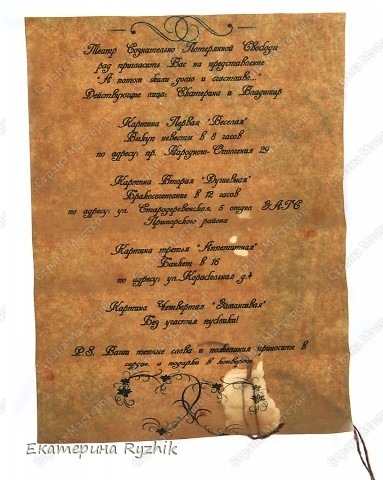 Театр Сознательно Потерянной Свободы
рад пригласить Вас на представление
"А потом жили долго и счастливо..."
Действующие лица: Екатерина и Владимир
Картина Первая "Веселая"
Выкуп невесты в 8 часов
по адресу: пр. Народного Ополчения 29
Картина Вторая "Душевная"
Бракосочетание в 12 часов
по адресу: ул. Стародеревенская, 5 отдел ЗАГС
Приморского района
Картина третья "Аппетитная"
Банкет в 16
по адресу: ул. Корабельная д.4
Картина Четвертая "Заманчивая"
Без участия публики!
P.S. Ваши теплые слова и пожелания приносите в
душе, а подарки в конверте
Екатерина Ryzhik